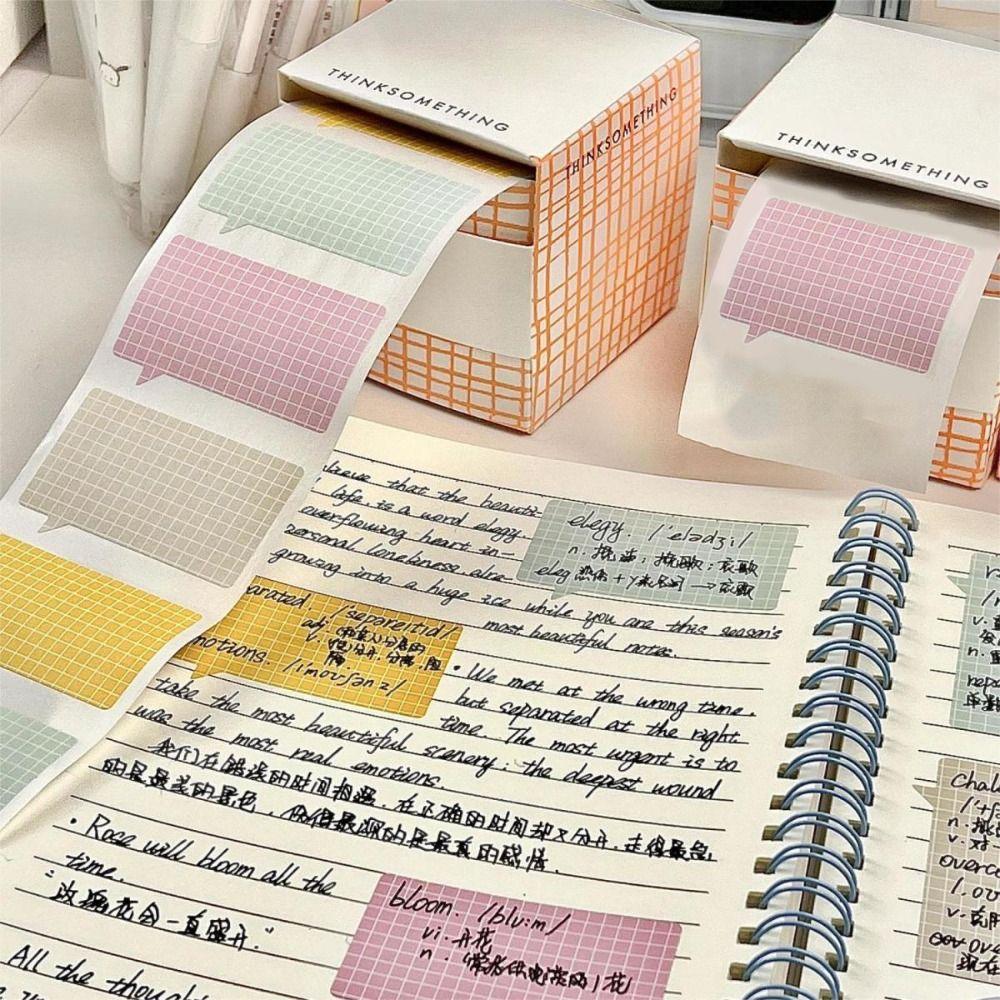 THINKSOMETHING
THINKSOMETHING
THINKSOMETHING
that the beauti-
life. is a word elegy.
overflowing heart in-
personal loneliness
growing into a huge ice while you are this season's
most beautiful notes.
elegy. /'elədʒi/
n. 挽诗；挽歌；哀歌
eleg 悲伤 + y → 哀歌
arated. /'sepəreitid/
adj.
v. 分开.分离.
emotions. /ɪ'moʊʃənz/
• We met at the wrong time.
but separated at the right
time. The most urgent is to
take the most beautiful scenery; the deepest wound
was the most real emotions.
我们在错误的时间相遇，在正确的时间却又分开，走得最急
的是最美的景色，伤得最深的是最真的感情。
• Rose will bloom all the
time.
"玫瑰花会一直盛开."
bloom. /blu:m/
vi. 开花
n.
All the though
v.
n.
n.
v.
v.